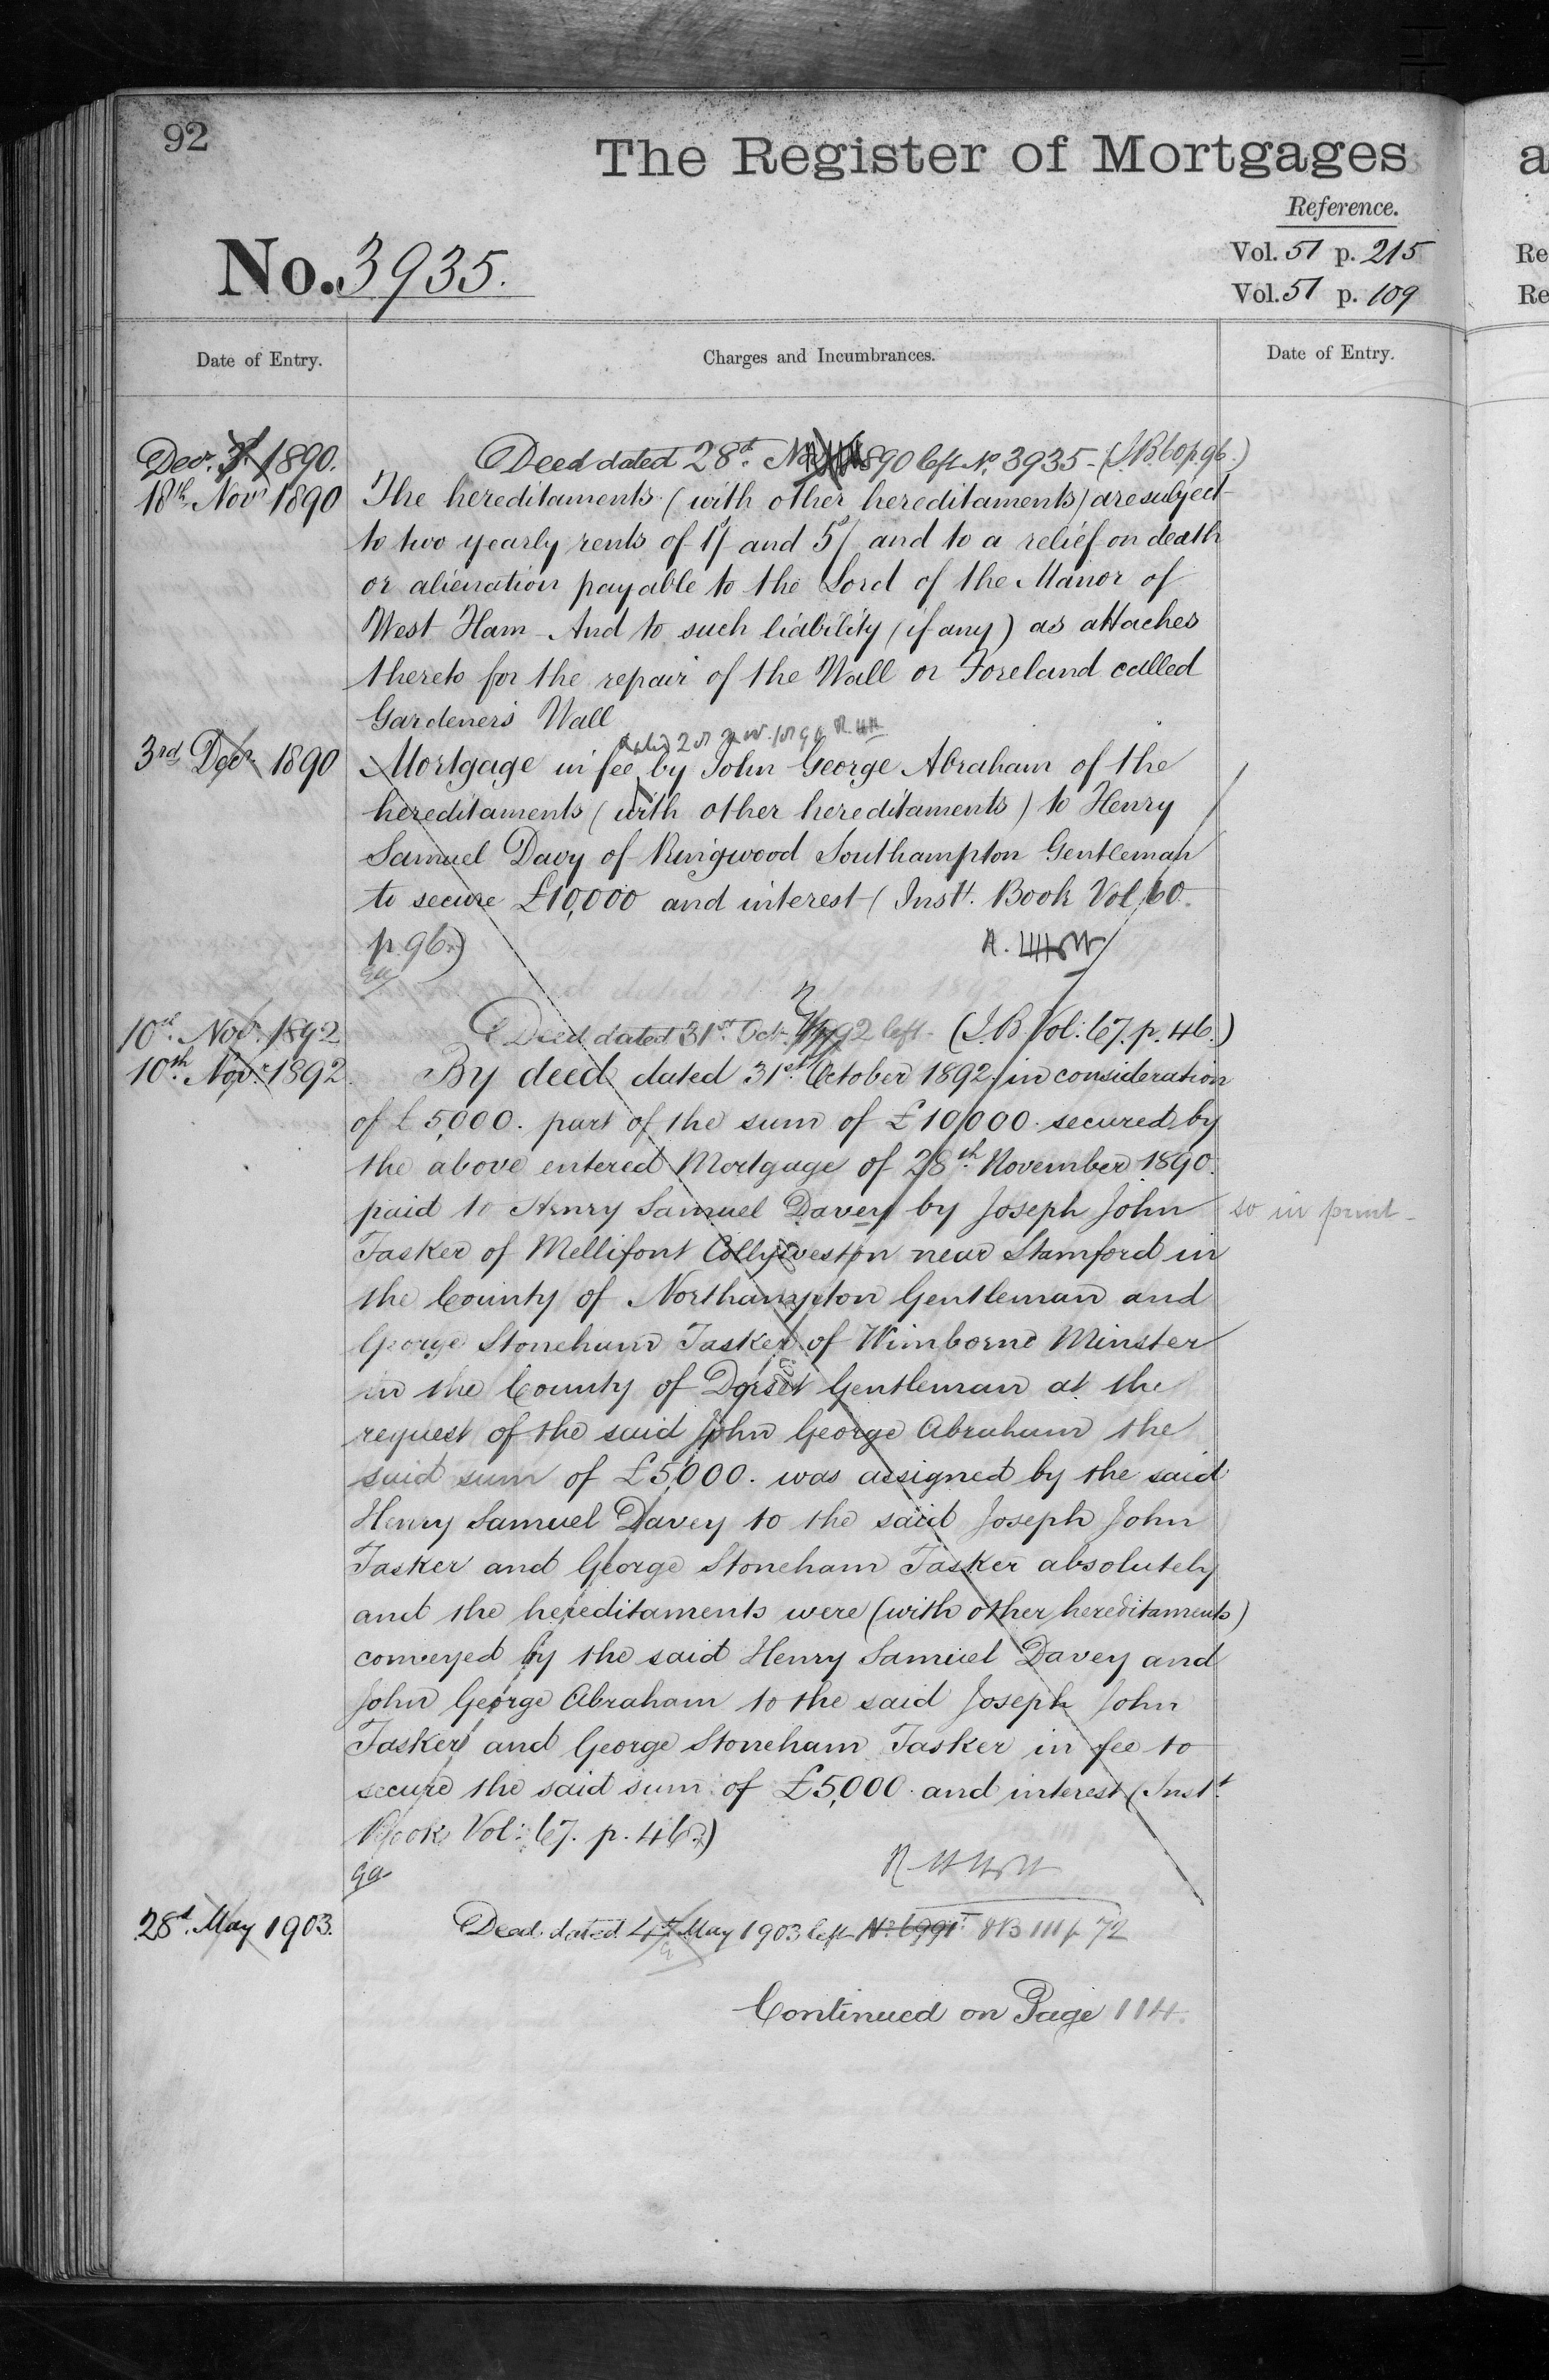 92
The Register of Mortgages
a
Reference.
No. 3935.
Vol. 51 p. 215
Re
Vol. 51 p. 109
Re
Date of Entry.
Charges and Incumbrances.
Date of Entry.
Decr. 3d. 1890.
Deed dated 28th. Nov 1890 left No. 3935 - (I.B. 60 p 96.)
18th Novr 1890
The hereditaments (with other hereditaments) are subject
to two yearly rents of 1s/ and 5s/ and to a relief on death
or alienation payable to the Lord of the Manor of
West Ham And to such liability (if any) as attaches
thereto for the repair of the Wall or Foreland called
Gardeners Wall
dated 28 Nov. 1890
3rd Decr. 1890
Mortgage in fee by John George Abraham of the
hereditaments (with other hereditaments) to Henry
Samuel Davy of Ringwood Southampton Gentleman
to secure £10,000 and interest (Instt. Book Vol 60.
p. 96.)
10th. Novr. 1892
Deed dated 31st. Octr. 1892 left - (I.B Vol: 67. p. 46.)
10th. Novr. 1892.
By deed dated 31st. October 1892 in consideration
of £5,000. part of the sum of £10,000. secured by
the above entered Mortgage of 28th. November 1890.
paid to Henry Samuel Davey by Joseph John
so in print -
Tasker of Mellifont Collyweston near Stamford in
the County of Northampton Gentleman and
George Stoneham Tasker of Wimborne Minster
in the County of Dorset Gentleman at the
request of the said John George Abraham the
said sum of £5,000. was assigned by the said
Henry Samuel Davey to the said Joseph John
Tasker and George Stoneham Tasker absolutely
and the hereditaments were (with other hereditaments)
conveyed by the said Henry Samuel Davey and
John George Abraham to the said Joseph John
Tasker and George Stoneham Tasker in fee to
secure the said sum of £5,000. and interest (Instt.
Book Vol: 67. p. 46.)
28th. May 1903.
Deed dated 4th May 1903 left No. 6991 IB 111 p 72
Continued on Page 114.